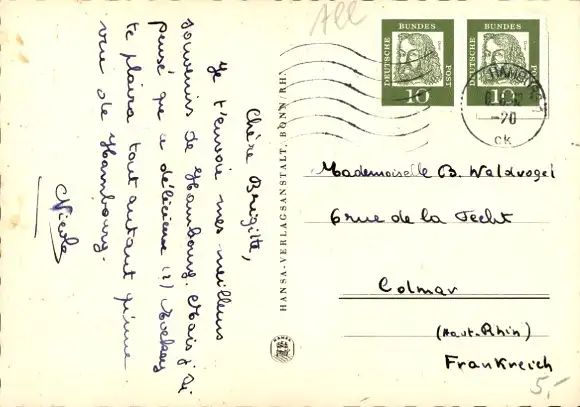 All
Chère Brigitte,
Je t'envoie mes meilleurs
souvenirs de Hambourg. Mais j'ai
pensé que ce délicieux (?) Mockey
te plaira tout autant qu'une
vue de Hambourg.
Nicole
HANSA-VERLAGSANSTALT, BONN/RH.
HANSA
DEUTSCHE
BUNDES
POST
10
DEUTSCHE
BUNDES
POST
10
HAMBURG
-20
ck
Mademoiselle B. Waldvogel
6 rue de la Fecht
Colmar
(Haut-Rhin)
Frankreich
5,-